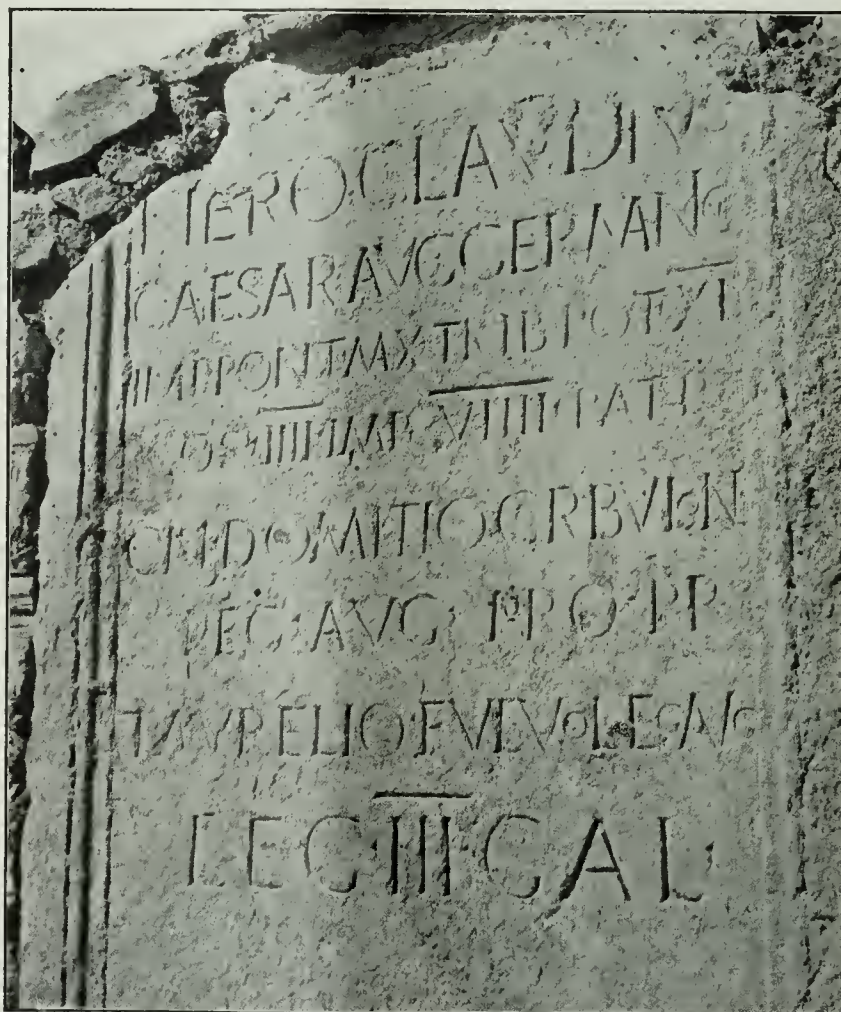 NERO CLAVDIVS
CAESAR AVG GERMANIC
IMP PONT MAX TRIB POT XI
COS IIII IMP VIIII PAT P
CN DOMITIO CORBVLON
LEG AVG PRO PR
T AVRELIO FVLVO LEG AVG
LEG III GAL